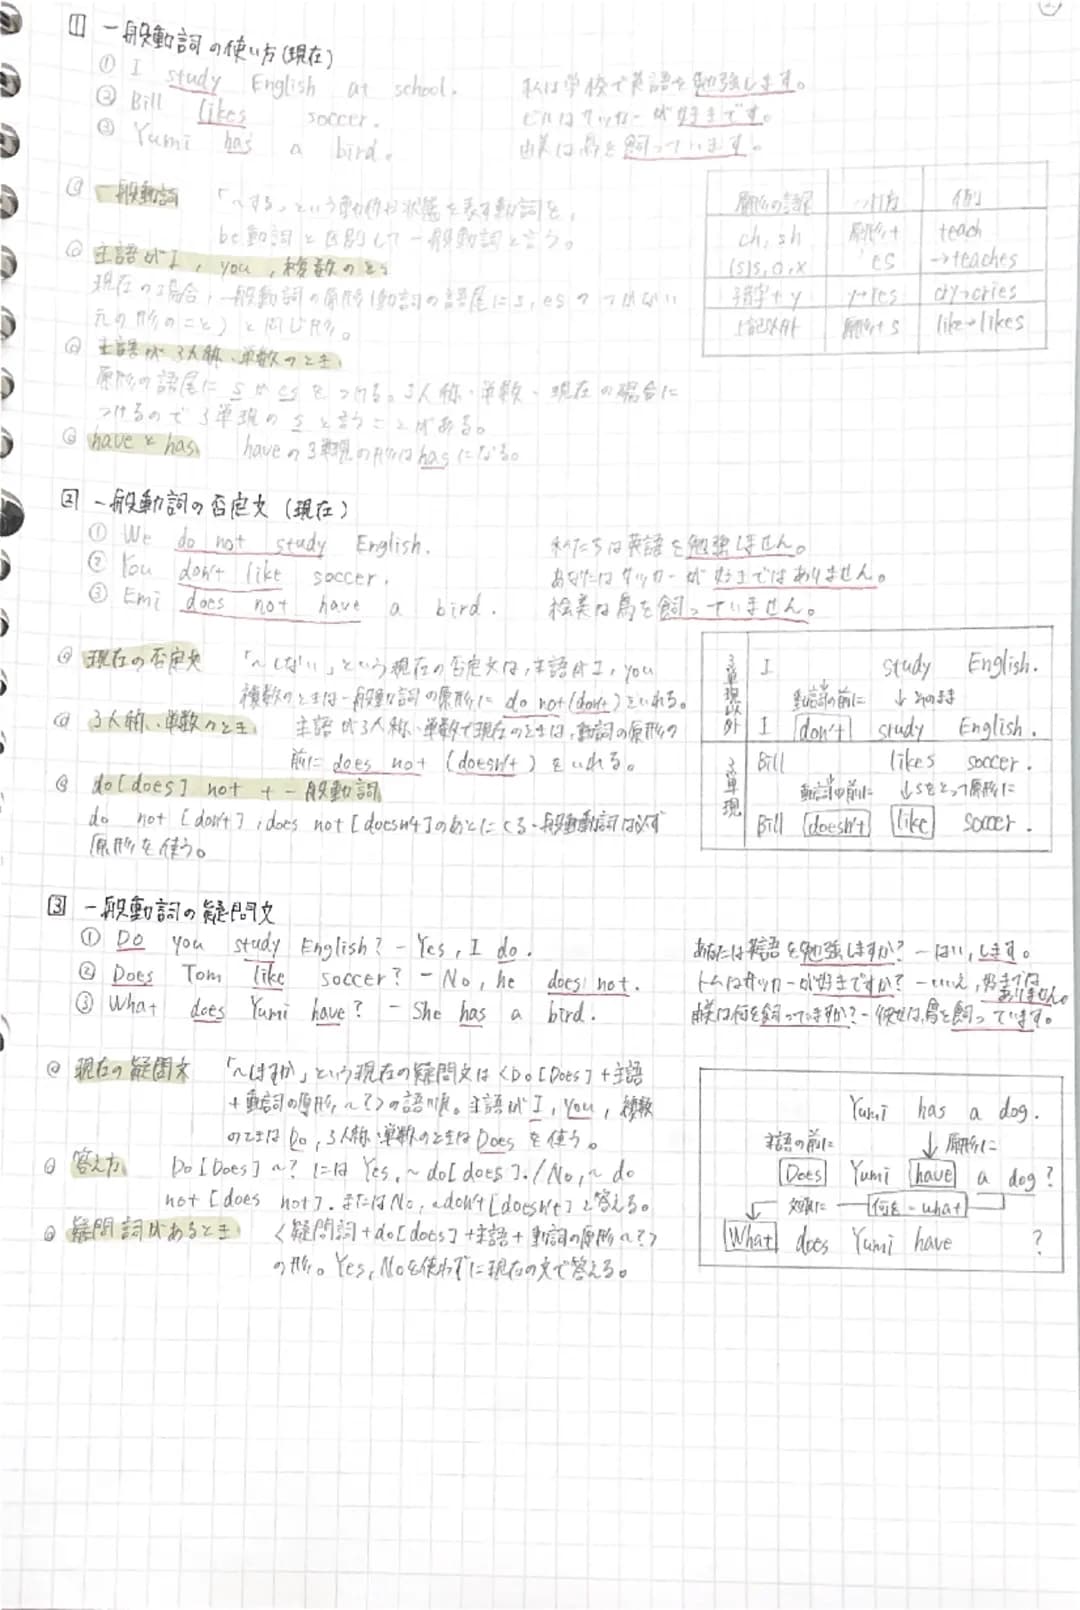 1 一般動詞の使い方(現在)
① I study English at school. 私は学校で英語を勉強します。
② Bill likes soccer. ビルはサッカーが好きです。
③ Yumi has a bird. 由美は鳥を飼っています。
一般動詞 「〜する」という動作や状態を表す動詞を、
be動詞と区別して一般動詞と言う。
主語がI, you, 複数のとき
現在の場合、一般動詞の原形(動詞の語尾にs, esのつかない
元の形のこと)と同じ形。
主語が3人称・単数のとき
原形の語尾にsかesをつける。3人称・単数・現在の場合に
つけるので3単現のsと言うことがある。
haveとhas haveの3単現の形はhasになる。
原形の語尾 つけ方 例
ch, sh 原形+ teach
(s)s, o, x es →teaches
子音字+y y→ies cry→cries
上記以外 原形+s like→likes
2 一般動詞の否定文(現在)
① We do not study English. 私たちは英語を勉強しません。
② You don't like soccer. あなたはサッカーが好きではありません。
③ Emi does not have a bird. 絵美は鳥を飼っていません。
現在の否定文 「〜しない」という現在の否定文は、主語がI, you
複数のときは一般動詞の原形に do not(don't)をいれる。
3人称・単数のとき 主語が3人称・単数で現在のときは、動詞の原形の
前に does not (doesn't) をいれる。
do[does] not + 一般動詞
do not [don't], does not [doesn't]のあとにくる一般動詞は必ず
原形を使う。
3単現以外 I study English.
動詞の前に ↓そのまま
I don't study English.
3単現 Bill likes soccer.
動詞の前に ↓sをとって原形に
Bill doesn't like soccer.
3 一般動詞の疑問文
① Do you study English? - Yes, I do. あなたは英語を勉強しますか? - はい, します。
② Does Tom like soccer? - No, he does not. トムはサッカーが好きですか? - いいえ, 好きではありません。
③ What does Yumi have? - She has a bird. 由美は何を飼っていますか? - 彼女は, 鳥を飼っています。
現在の疑問文 「〜しますか」という現在の疑問文は<Do[Does]+主語
+動詞の原形〜?>の語順。主語がI, you, 複数
のときはDo, 3人称・単数のときはDoes を使う。
答え方 Do[Does]〜? には Yes, 〜do[does]. / No, 〜do
not [does not]. またはNo, 〜don't[doesn't]と答える。
疑問詞があるとき <疑問詞+do[does]+主語+動詞の原形〜?>
の形。Yes, Noを使わずに現在の文で答える。
Yumi has a dog.
主語の前に ↓原形に
Does Yumi have a dog?
文頭に 何を=what
What does Yumi have ?